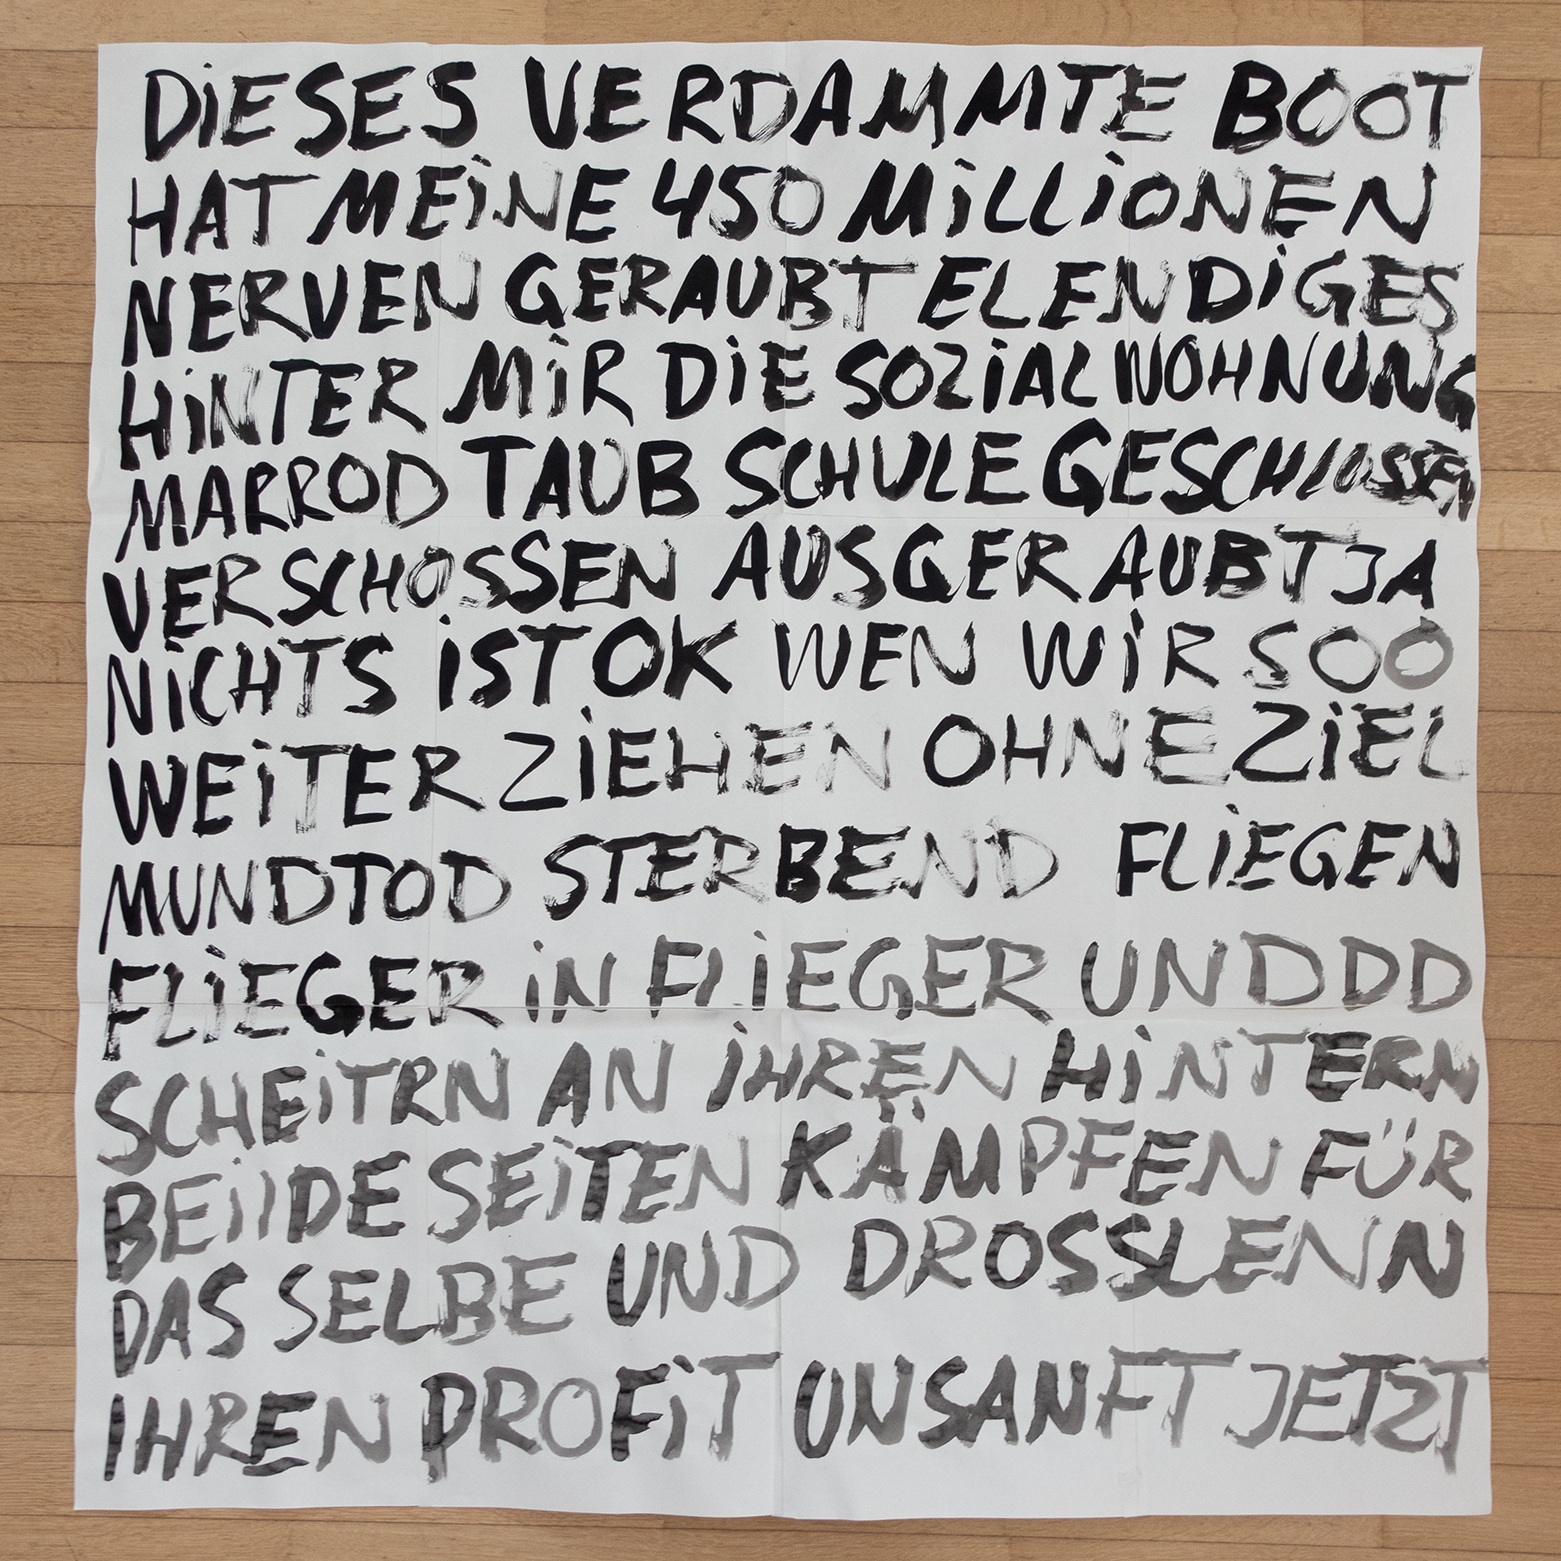 DIESES VERDAMMTE BOOT
HAT MEINE 450 MILLIONEN
NERVEN GERAUBT ELENDIGES
HINTER MIR DIE SOZIALWOHNUNG
MARROD TAUB SCHULE GESCHLOSSEN
VERSCHOSSEN AUSGERAUBT JA
NICHTS IST OK WEN WIR SOO
WEITER ZIEHEN OHNE ZIEL
MUNDTOD STERBEND FLIEGEN
FLIEGER IN FLIEGER UNDDD
SCHEITRN AN IHREN HINTERN
BEIIDE SEITEN KÄMPFEN FÜR
DAS SELBE UND DROSSLENN
IHREN PROFIT UNSANFT JETZT